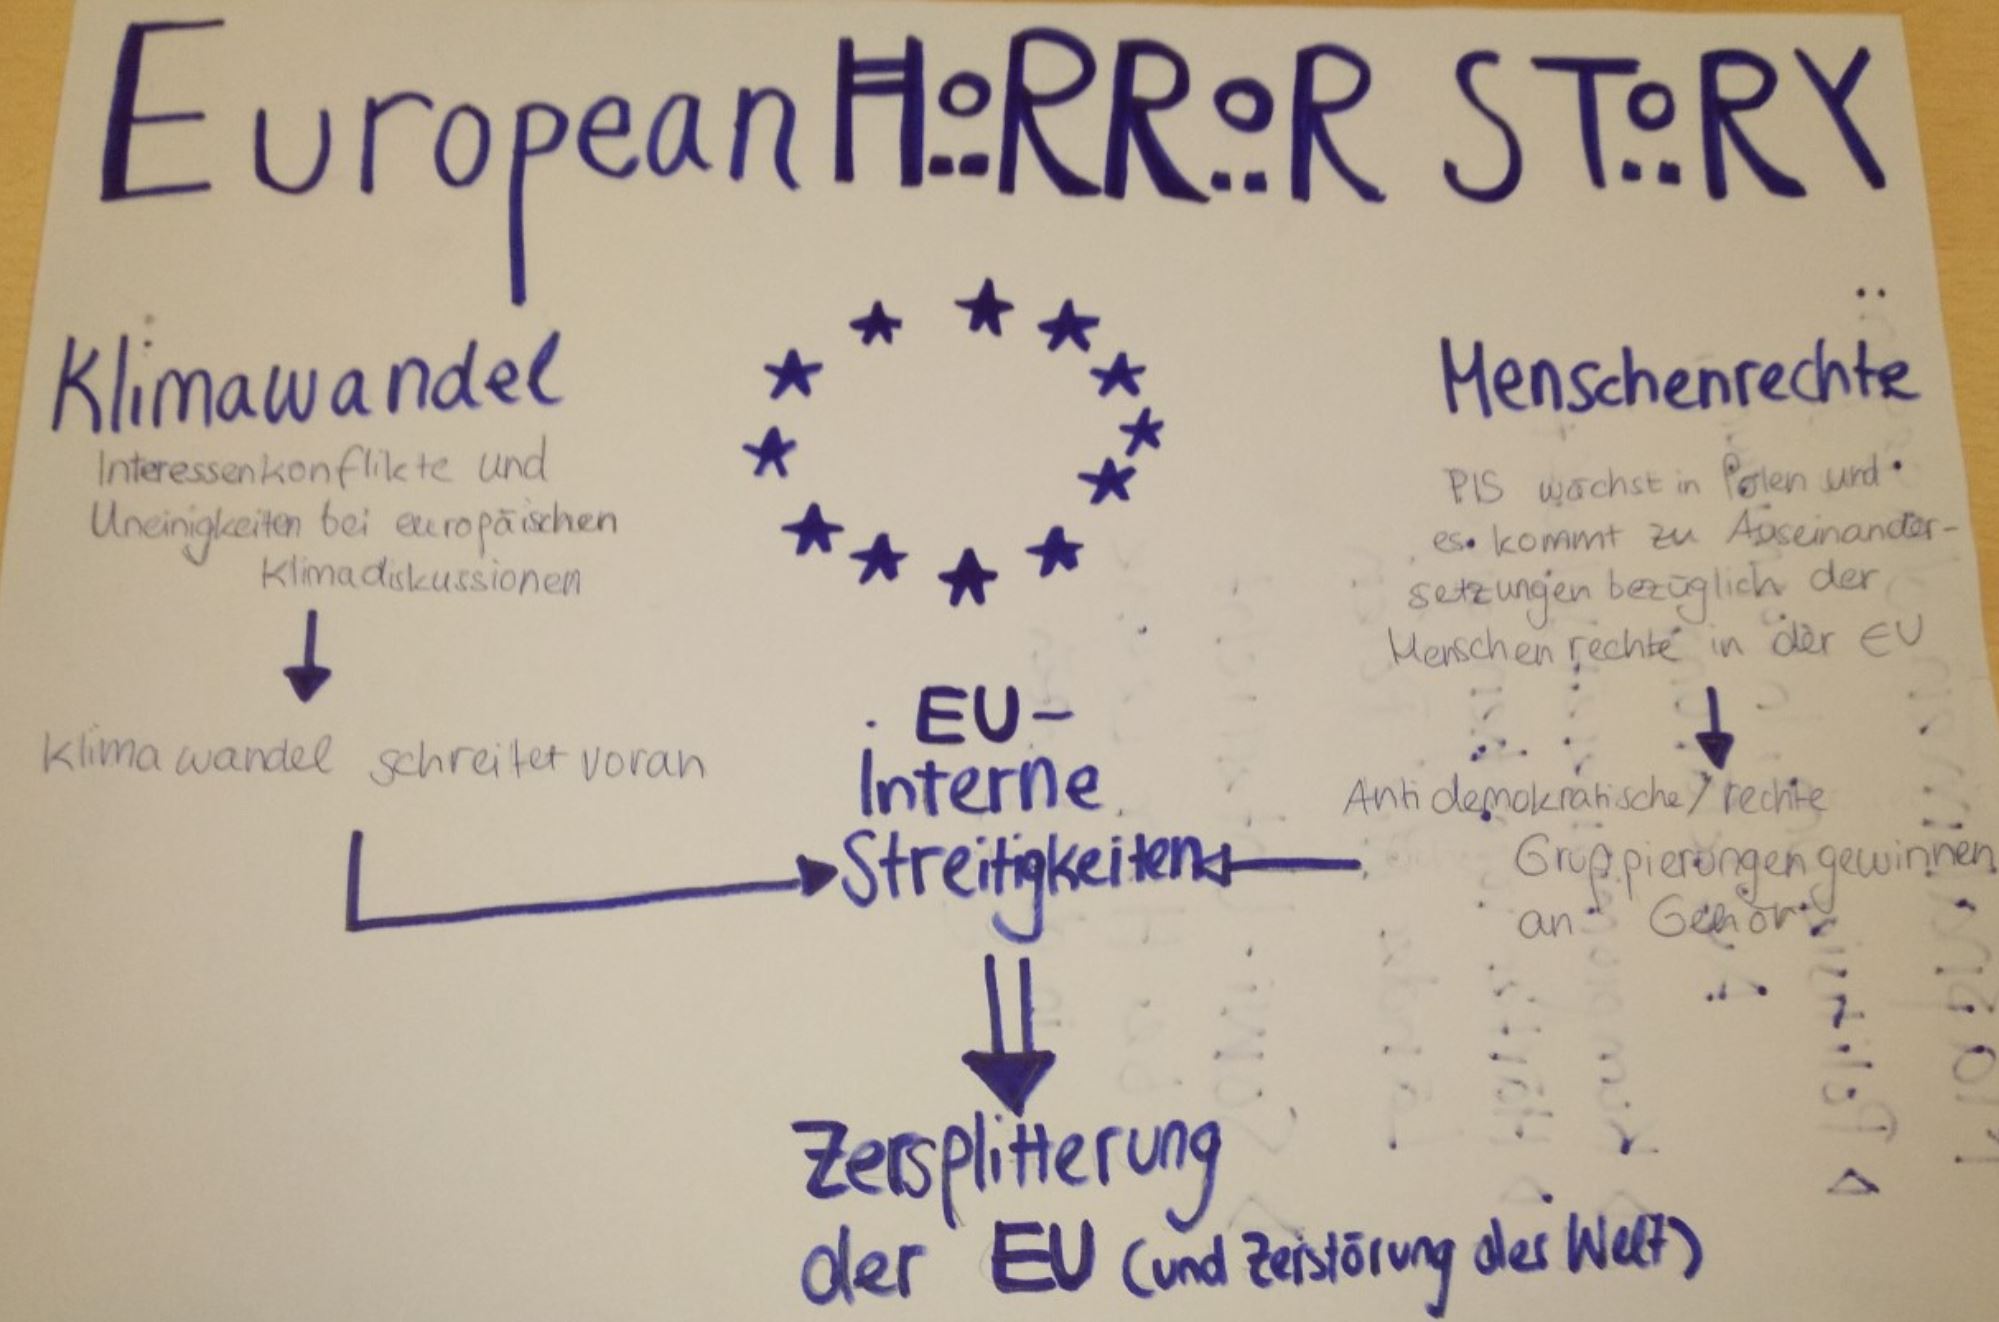 European HORROR STORY
Klimawandel
Interessenkonflikte und
Uneinigkeiten bei europäischen
Klimadiskussionen
Klimawandel schreitet voran
EU-
Interne
Streitigkeiten
Menschenrechte
PIS wächst in Polen und
es kommt zu Auseinander-
setzungen bezüglich der
Menschenrechte in der EU
Antidemokratische/rechte
Gruppierungen gewinnen
an Gehör
Zersplitterung
der EU (und Zerstörung der Welt)